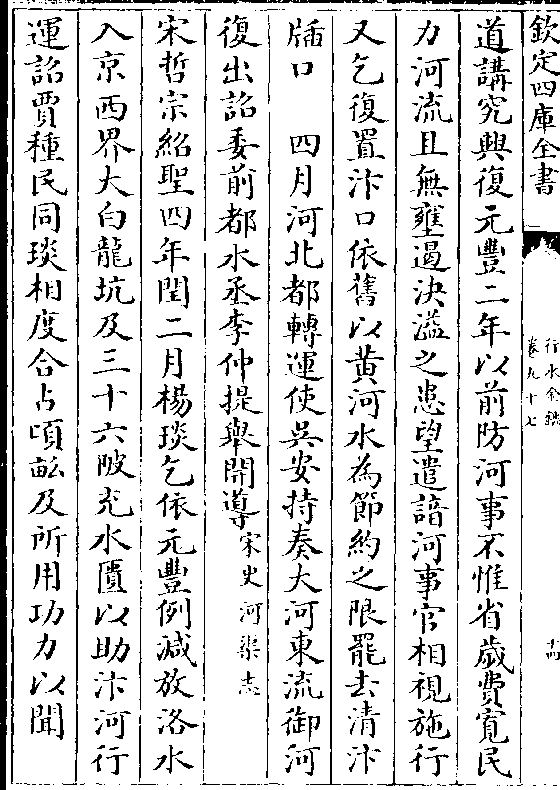 欽定四庫全書
行水金鑑
卷九十七
道講究興復元豐二年以前防河事不惟省歲費寬民
力河流且無壅遏決溢之患望遣諳河事官相視施行
又乞復置汴口依舊以黄河水為節約之限罷去清汴
牐口　四月河北都轉運使吳安持奏大河東流御河
復出詔委前都水丞李仲提舉開導宋史河渠志
宋哲宗紹聖四年閏二月楊琰乞依元豐例減放洛水
入京西界大白龍坑及三十六陂充水匱以助汴河行
運詔賈種民同琰相度合占頃畝及所用功力以聞